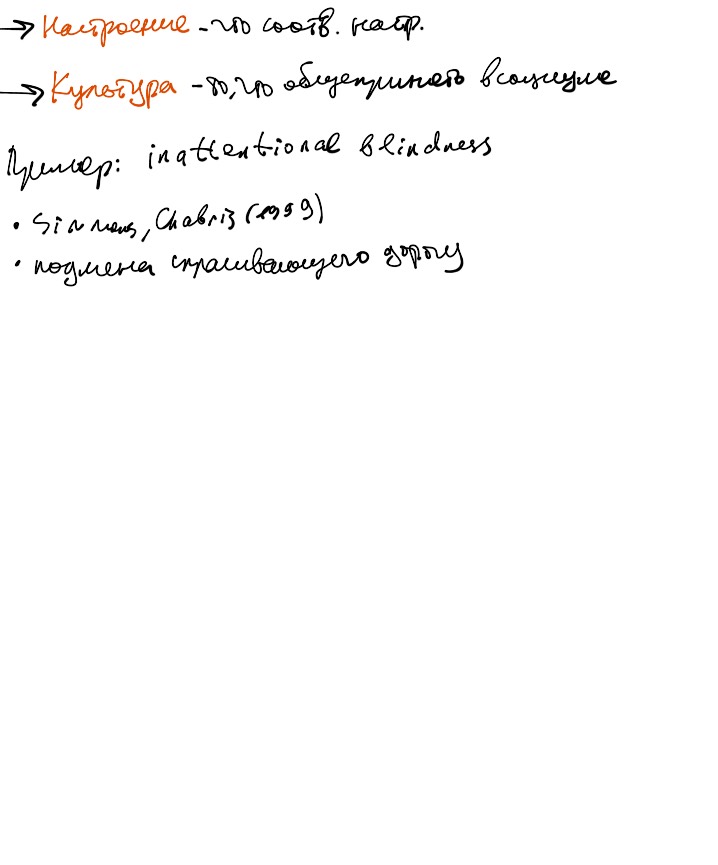 → Настроение - что соотв. настр.
→ Культура - то, что общепринято в социуме
Пример: inattentional blindness
• Simons, Chabris (1999)
• подмена спрашивающего дорогу